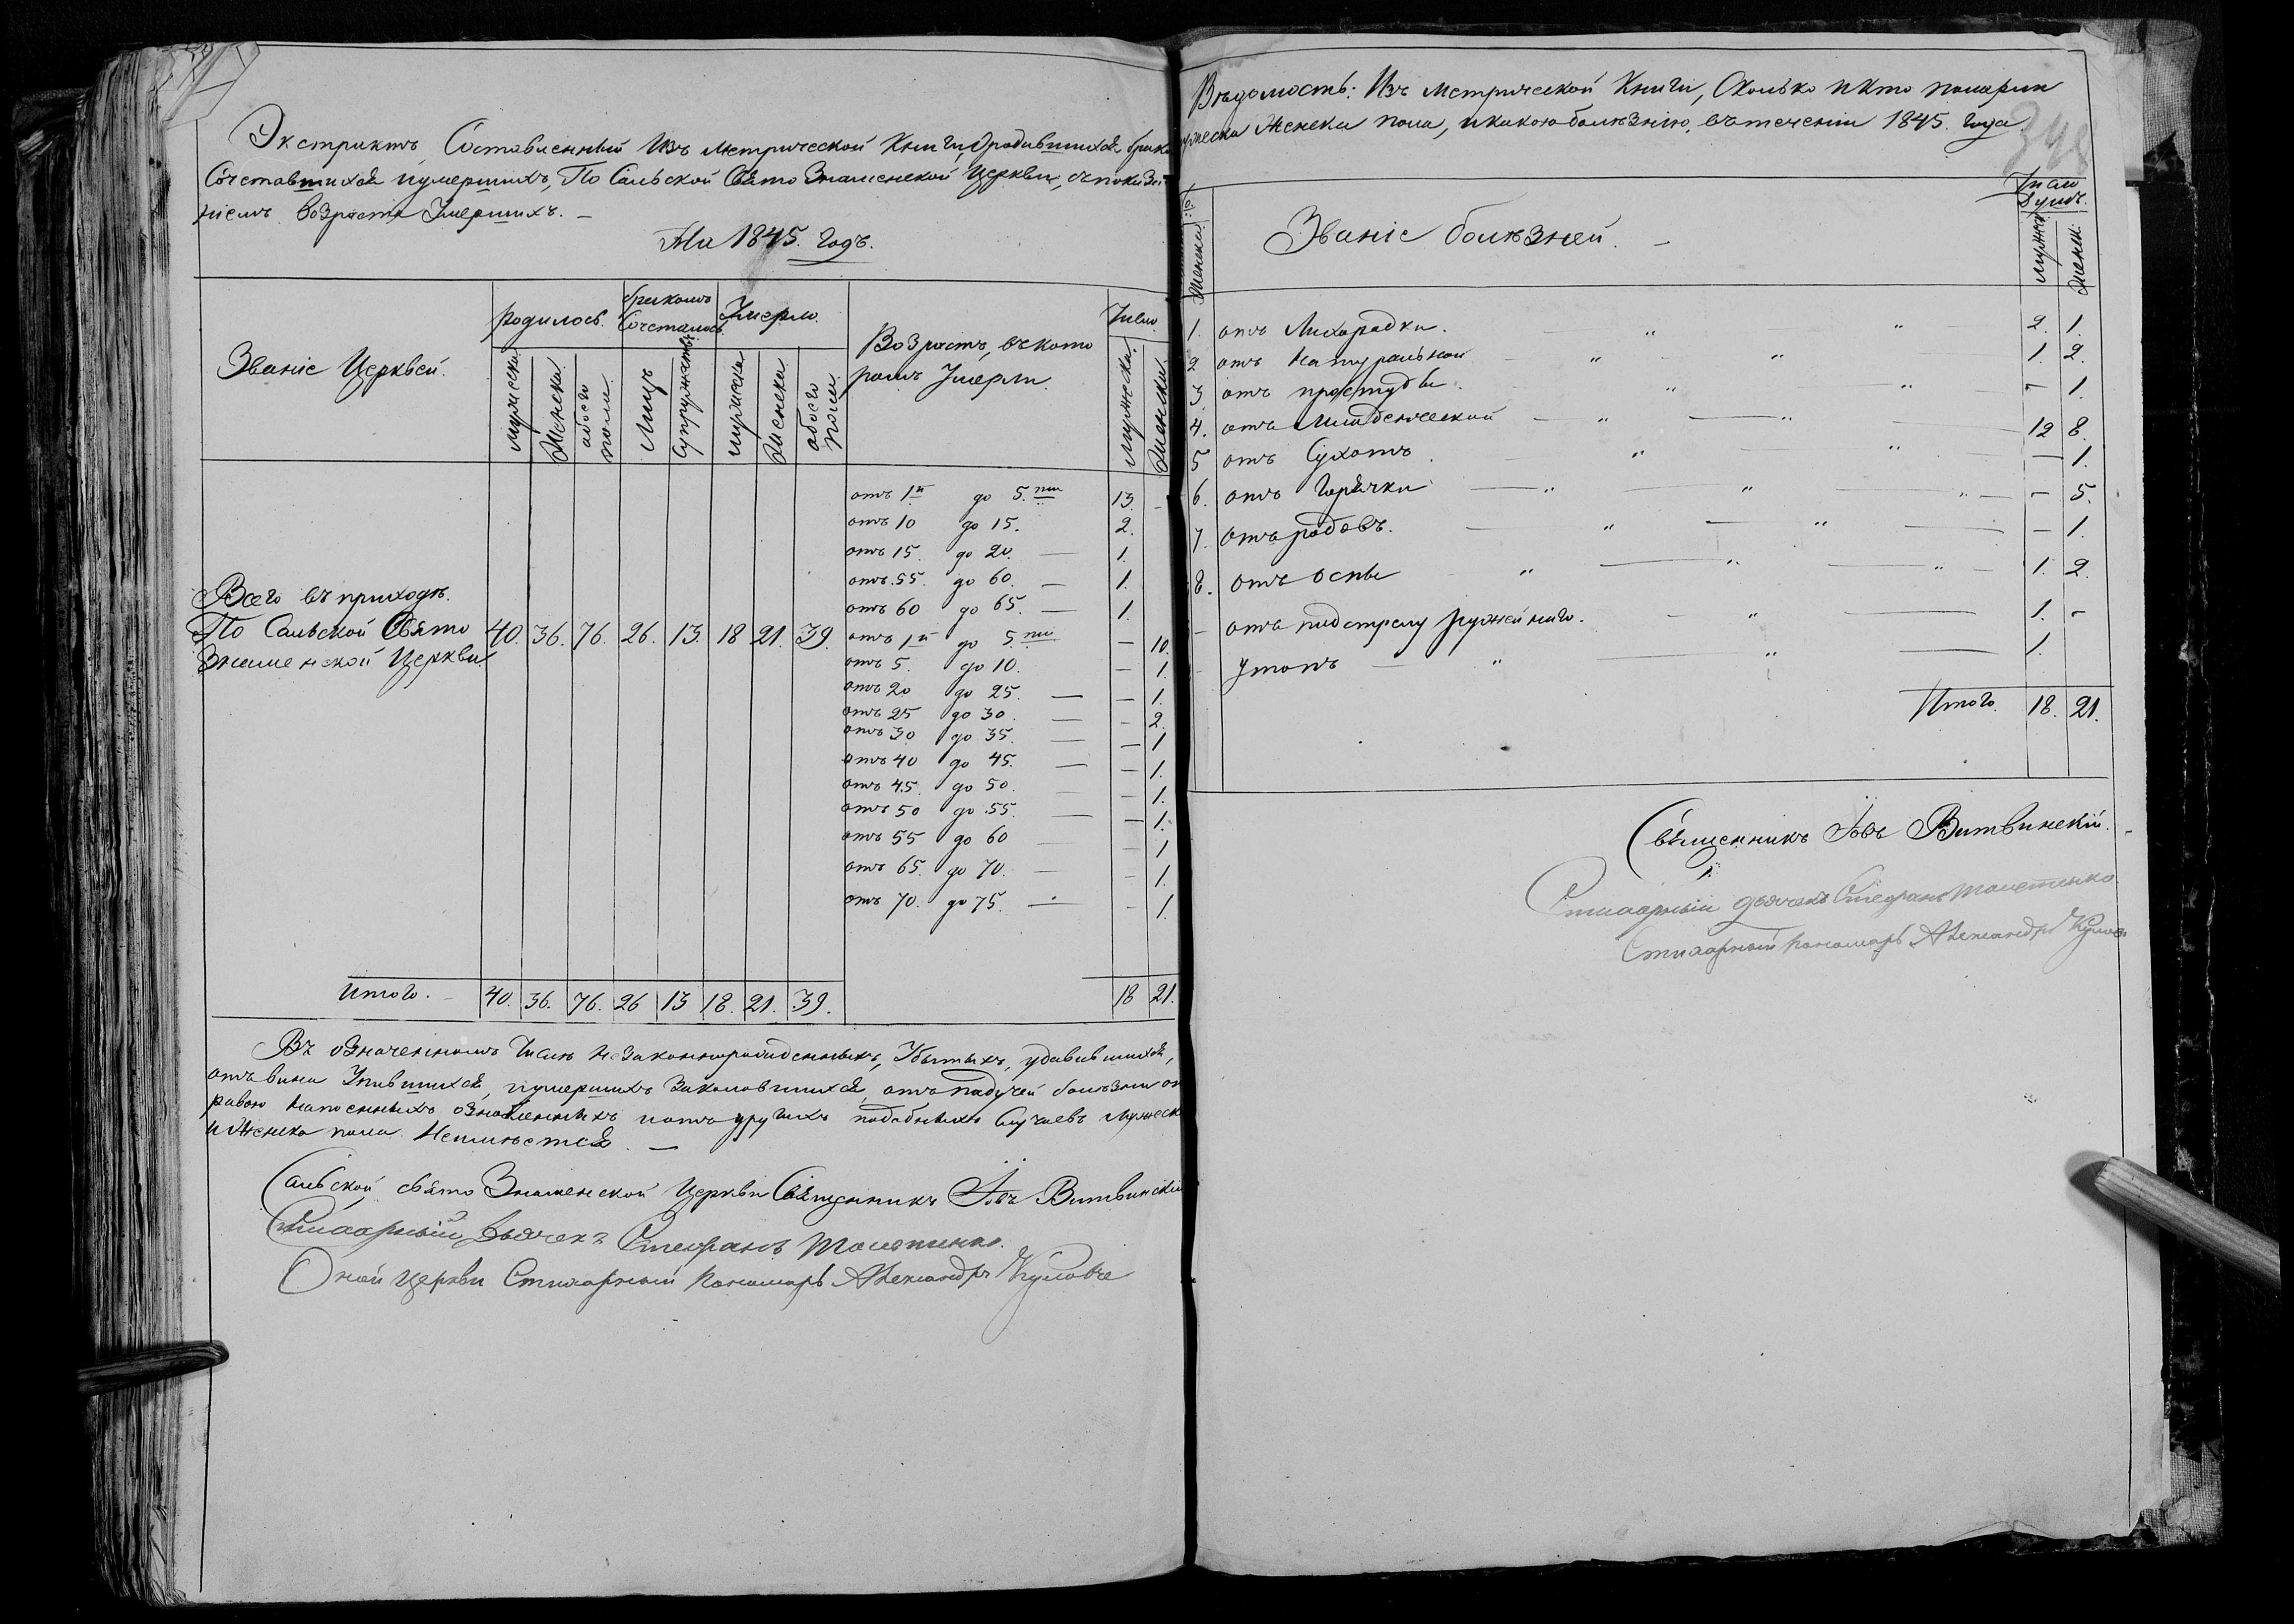 Экстрактъ, Составленный Изъ Метрической Книги, Ородившихся брако
Сочетавшихся иумершихъ, По Сальской Свято Знаменской Церкви, съ показа
ніемъ возраста Умершихъ. —
На 1845. Годъ.
Званіе Церквей.
родилось.
бракомъ Сочеталось.
Умерло.
Возрастъ, въ кото
ромъ Умерли.
Число
мужеска. Женска. обоего пола Лицъ Супружествъ мужеска Женска обоего пола Мужеска. Женска.
отъ 1й до 5.ти 13. -
отъ 10 до 15. 2.
отъ 15. до 20. — 1.
отъ 55. до 60. — 1.
отъ 60 до 65. — 1.
Всего въ приходѣ.
По Сальской Свято
Знаменской Церкви 40. 36. 76. 26. 13. 18 21. 39.
отъ 1й до 5.ти — 10.
отъ 5. до 10. — 1.
отъ 20 до 25. — — 1.
отъ 25 до 30. — - 2.
отъ 30 до 35. — — 1
отъ 40 до 45. — — 1.
отъ 45. до 50. — — 1.
отъ 50 до 55. — — 1.
отъ 55 до 60 — — 1
отъ 65. до 70. — - 1.
отъ 70. до 75. — - 1.
Итого. - 40. 36. 76. 26 13 18. 21. 39. 18 21.
Въ означенномъ Числѣ незаконнорожденныхъ, Убитыхъ, удавившихся,
отъ вина Упившихся, иумершихъ Заколовшихся, отъ падучей болѣзни от
равою напоенныхъ, иотъ другихъ подобныхъ Случаевъ Мужеск
и Женска пола Неимѣется. —
Сальской свято Знаменской Церкви Священникъ Іовъ Витвинскій
Стихарный Дьячекъ Стефанъ
Оной Церкви Стихарный Пономарь Александръ
Вѣдомость: Изъ Метрической Книги, Сколько икто померли
мужеска Женска пола, икакою болѣзнію, въ теченіи 1845. Года.
348
Женска.
Званіе болѣзней. —
Число Душъ.
мужеск Женск.
1. отъ Лихорадки. 2. 1.
2 отъ Натуральной 1. 2.
3 отъ простуды. - 1.
4. отъ Младенческой 12 8.
5 отъ Сухотъ. — 1.
6. отъ Горячки - 5.
7. отъ родовъ. - 1.
8. отъ оспы 1. 2.
- отъ подстрелу ружейнаго. 1. -
- утопъ 1.
Итого. 18. 21.
Священникъ Іовъ Витвинскій.
Стихарный Дьячекъ Стефанъ
Стихарный Пономарь Александръ